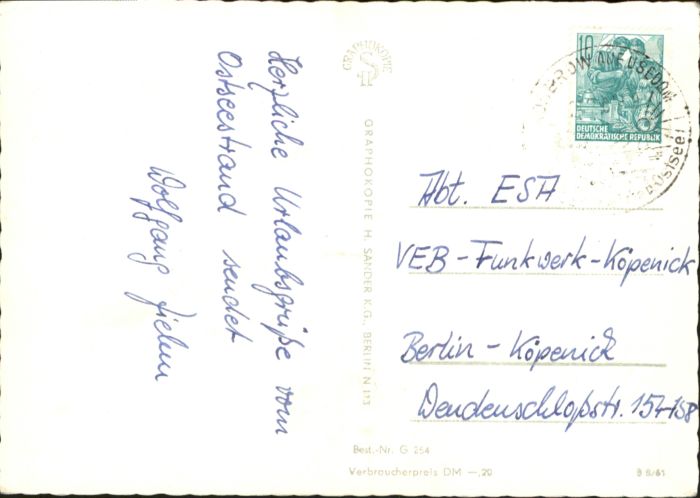 Herzliche Urlaubsgrüße vom
Ostseestrand sendet
Wolfgang
GRAPHOKOPIE
GRAPHOKOPIE H. SANDER K.G., BERLIN N 113
10
DEUTSCHE
DEMOKRATISCHE REPUBLIK
USEDOM
Ostsee
Abt. ESA
VEB-Funkwerk-Köpenick
Berlin - Köpenick
Wendenschloßstr. 154-158
Best.-Nr. G 254
Verbraucherpreis DM —,20
B 8/61